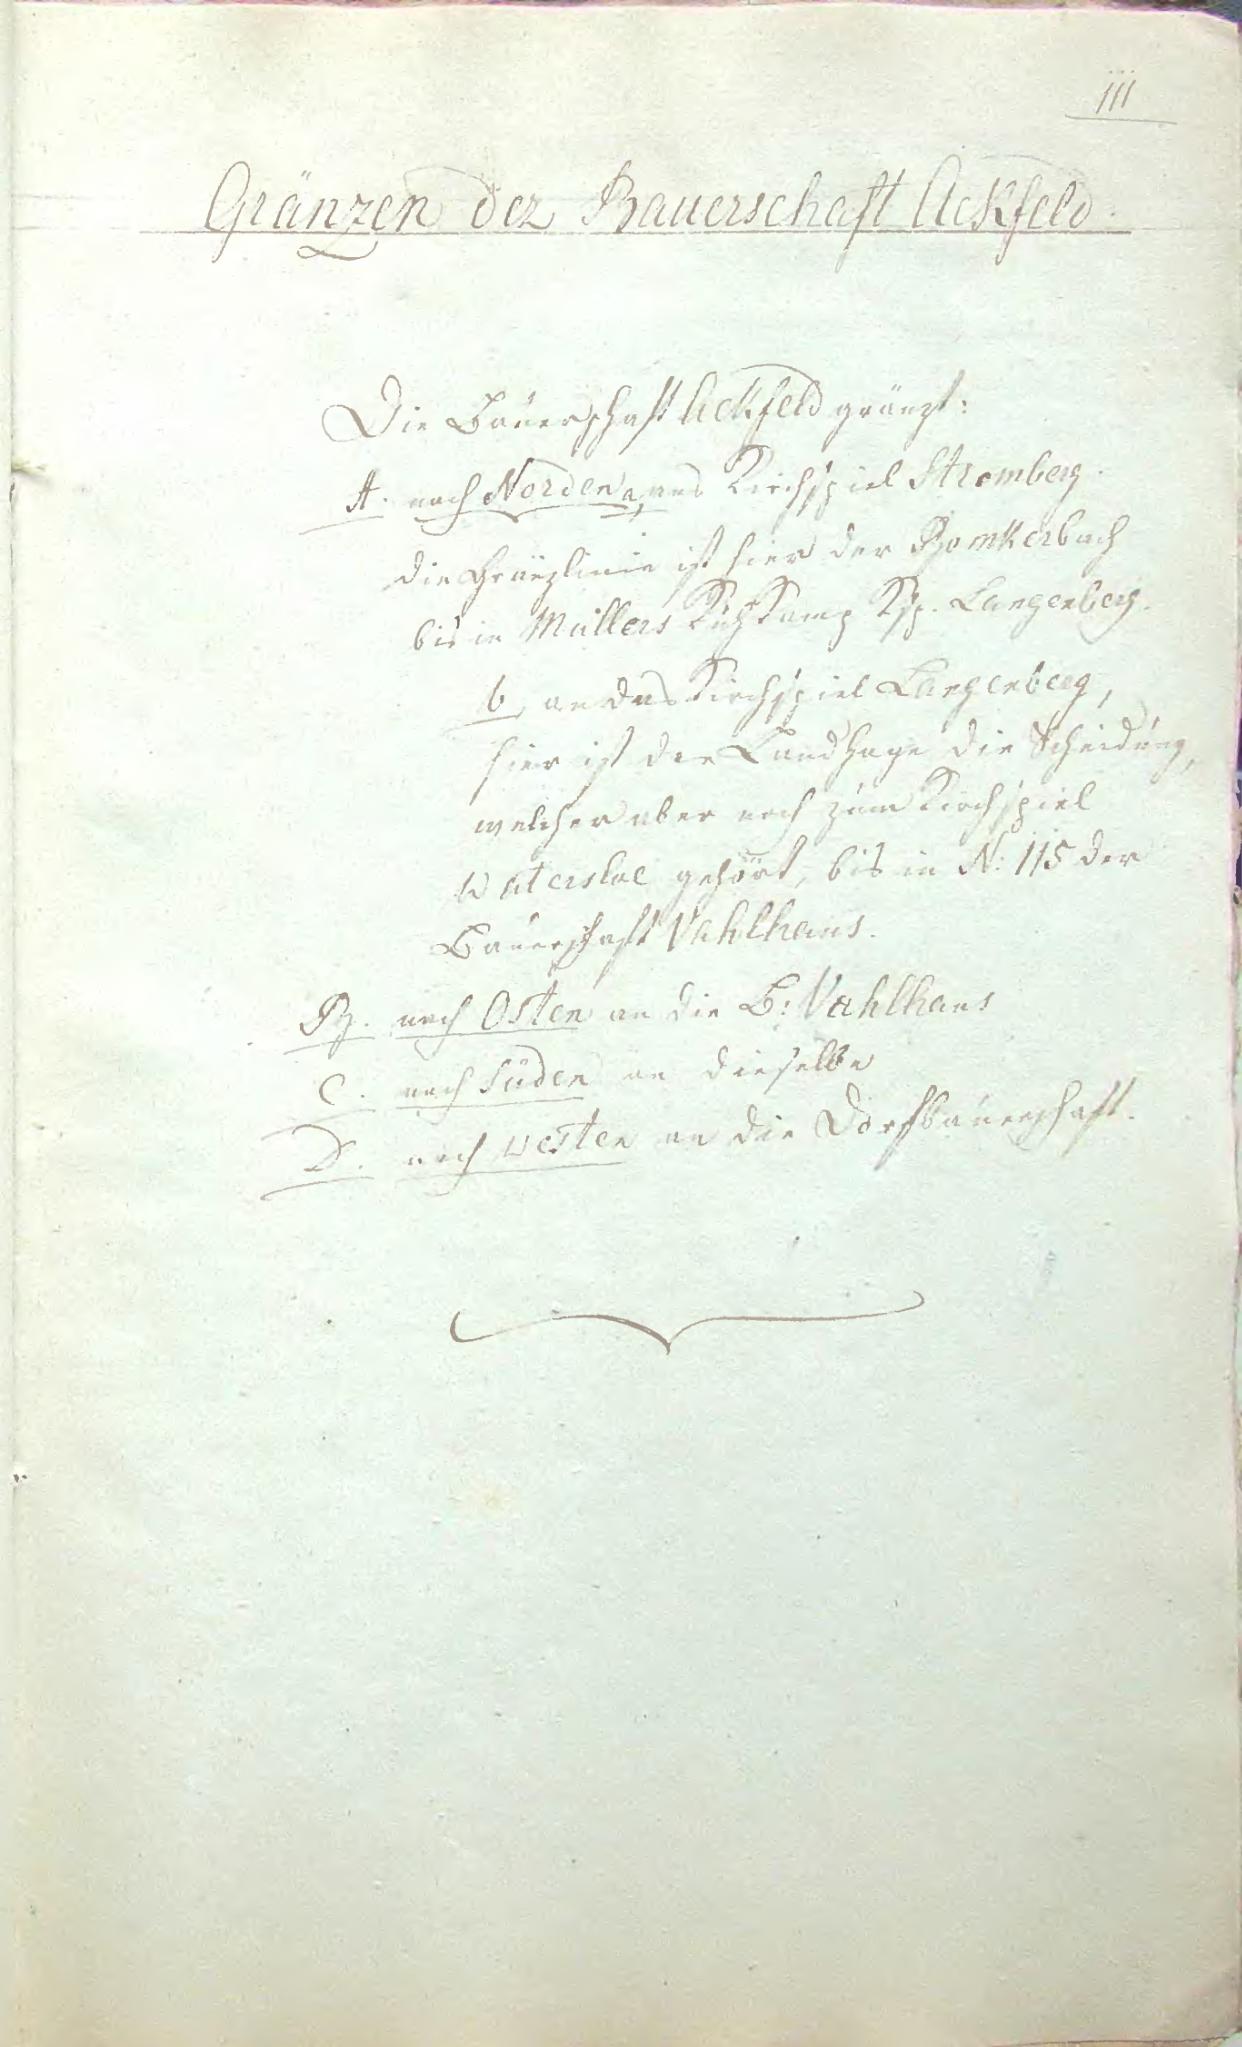 III
Gränzen der Bauerschaft Ackfeld.
Die Bauerschaft Ackfeld gränzt:
A. nach Norden a, ans Kirchspiel Stromberg.
die Gränzlinie ist hier der Bomkerbach
bis in Müllers Kuhkamp Ksp. Langenberg.
b, an das Kirchspiel Langenberg,
hier ist der Landhage die Scheidung,
welcher aber noch zum Kirchspiel
Watersloe gehört, bis in N: 115 der
Bauerschaft Vahlhaus.
B. nach Osten an die B: Vahlhaus
C. nach Süden an dieselbe
D. nach Westen an die Dorfbauerschaft.